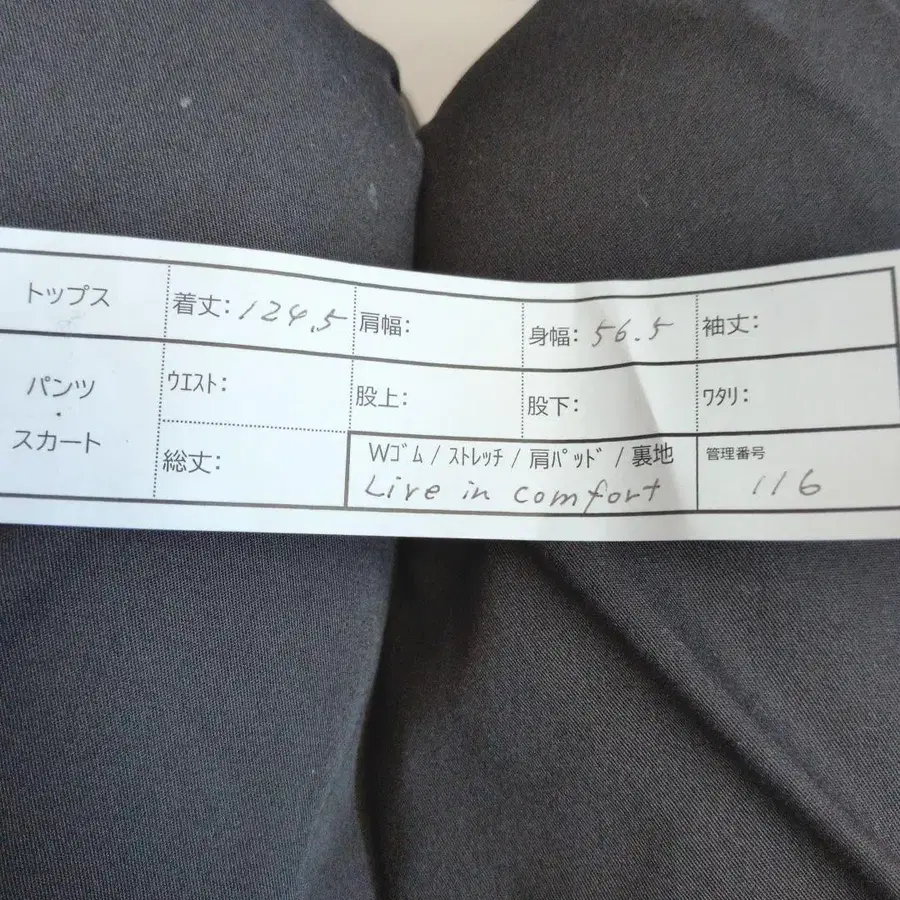 トップス 着丈: 124.5 肩幅: 身幅: 56.5 袖丈:
パンツ・スカート ウエスト: 股上: 股下: ワタリ:
総丈: Wゴム / ストレッチ / 肩パッド / 裏地 管理番号
Live in comfort 116